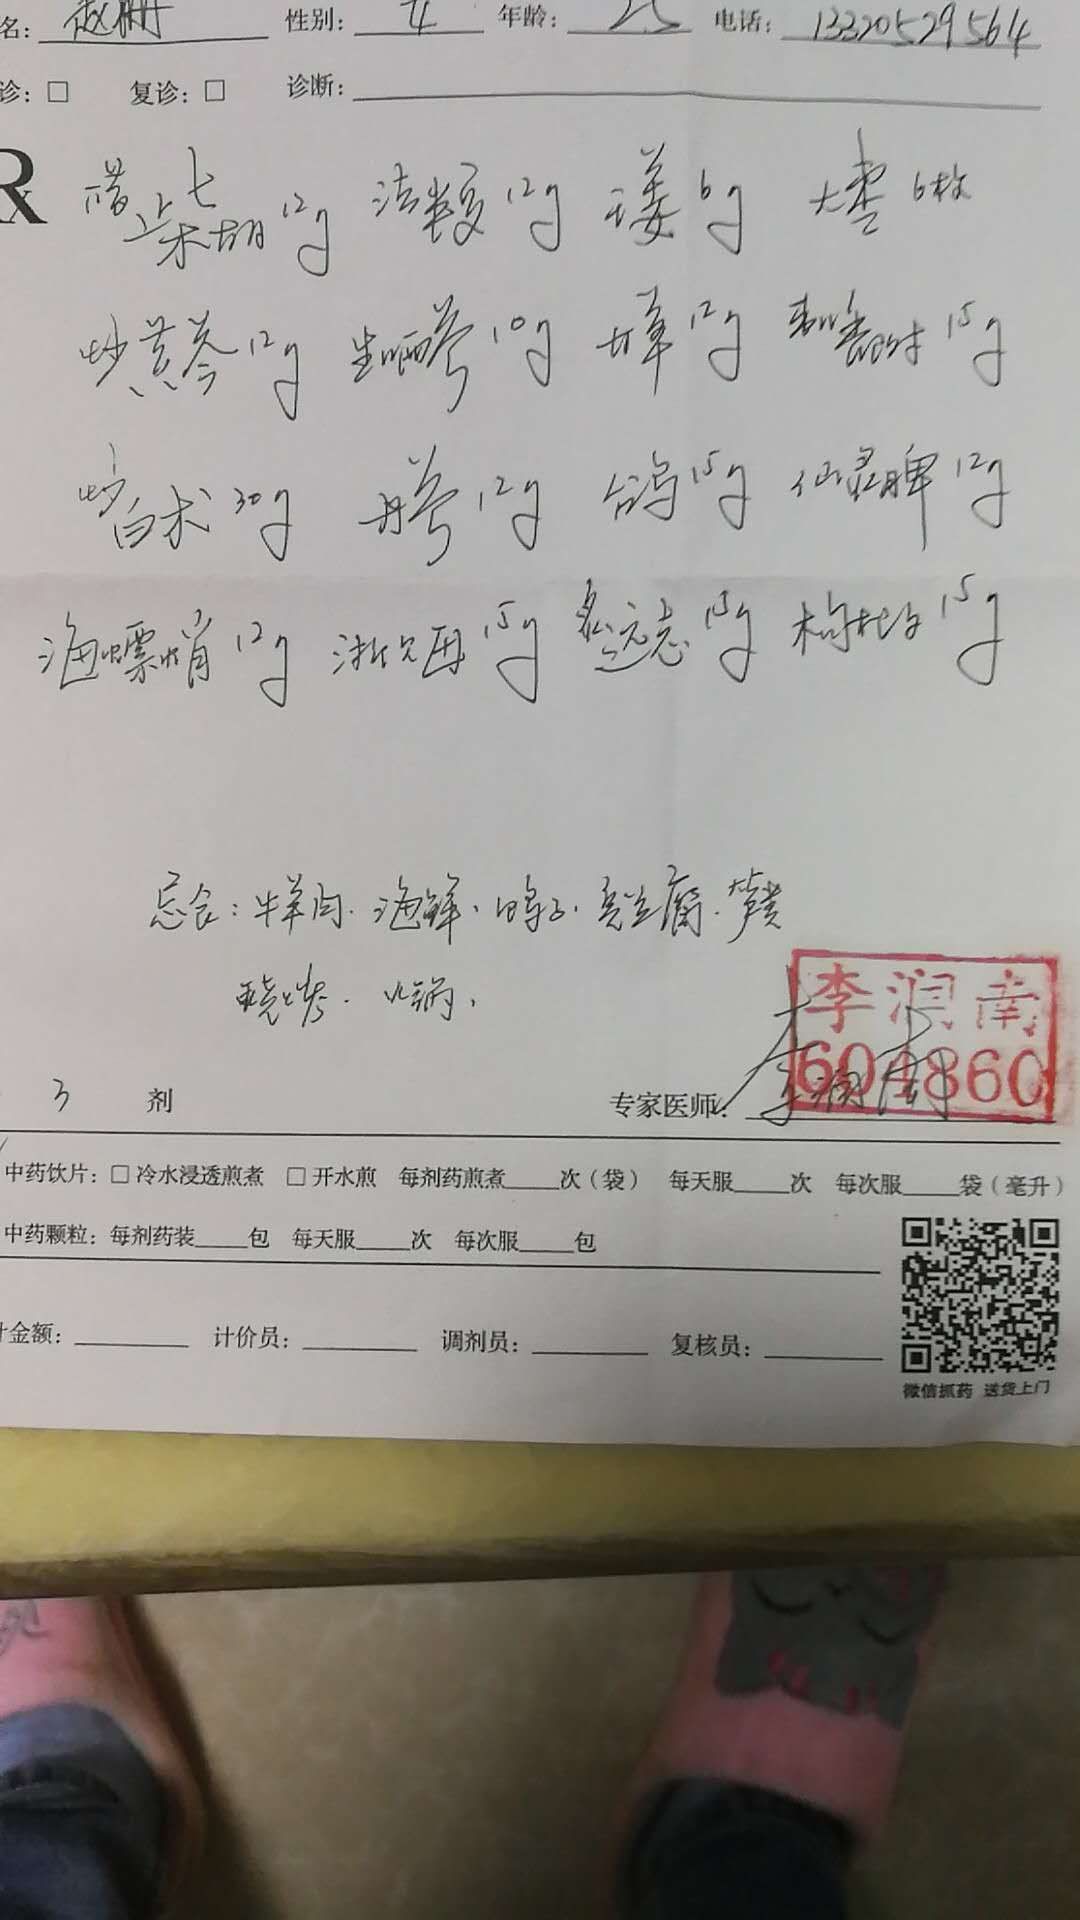 名: 性别: 女 年龄: 25 电话: 13320529564
诊: □ 复诊: □ 诊断:
Rx 醋北柴胡 12g 法半夏 12g 干姜 6g 大枣 6枚
炒黄芩 12g 生晒参 10g 甘草 12g 15g
炒白术 30g 丹参 12g 台乌 15g 仙灵脾 12g
海螵蛸 12g 浙贝母 15g 炙远志 15g 枸杞子 15g
忌食: 牛羊肉. 海鲜. 鸭子. 豆腐.
烧烤. 火锅.
3 剂 专家医师: 李润南
李润南
604860
中药饮片: □ 冷水浸透煎煮 □ 开水煎 每剂药煎煮____次(袋) 每天服____次 每次服____袋(毫升)
中药颗粒: 每剂药装____包 每天服____次 每次服____包
计金额: 计价员: 调剂员: 复核员:
微信抓药 送货上门